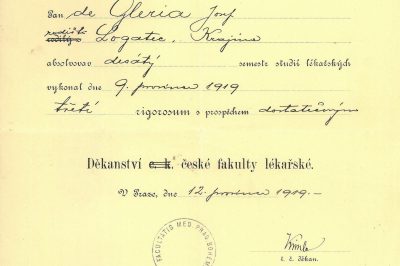 Pan de Gleria Josef
rodiště
rodilý z Logatec, Krajina
absolvovav desátý semestr studií lékařských
vykonal dne 9. prosince 1919
třetí rigorosum s prospěchem dostatečným
Děkanství c. k. české fakulty lékařské.
V Praze, dne 12. prosince 1919.–
FACULTATIS MED. PRAG. BOHEM
t. č. děkan.